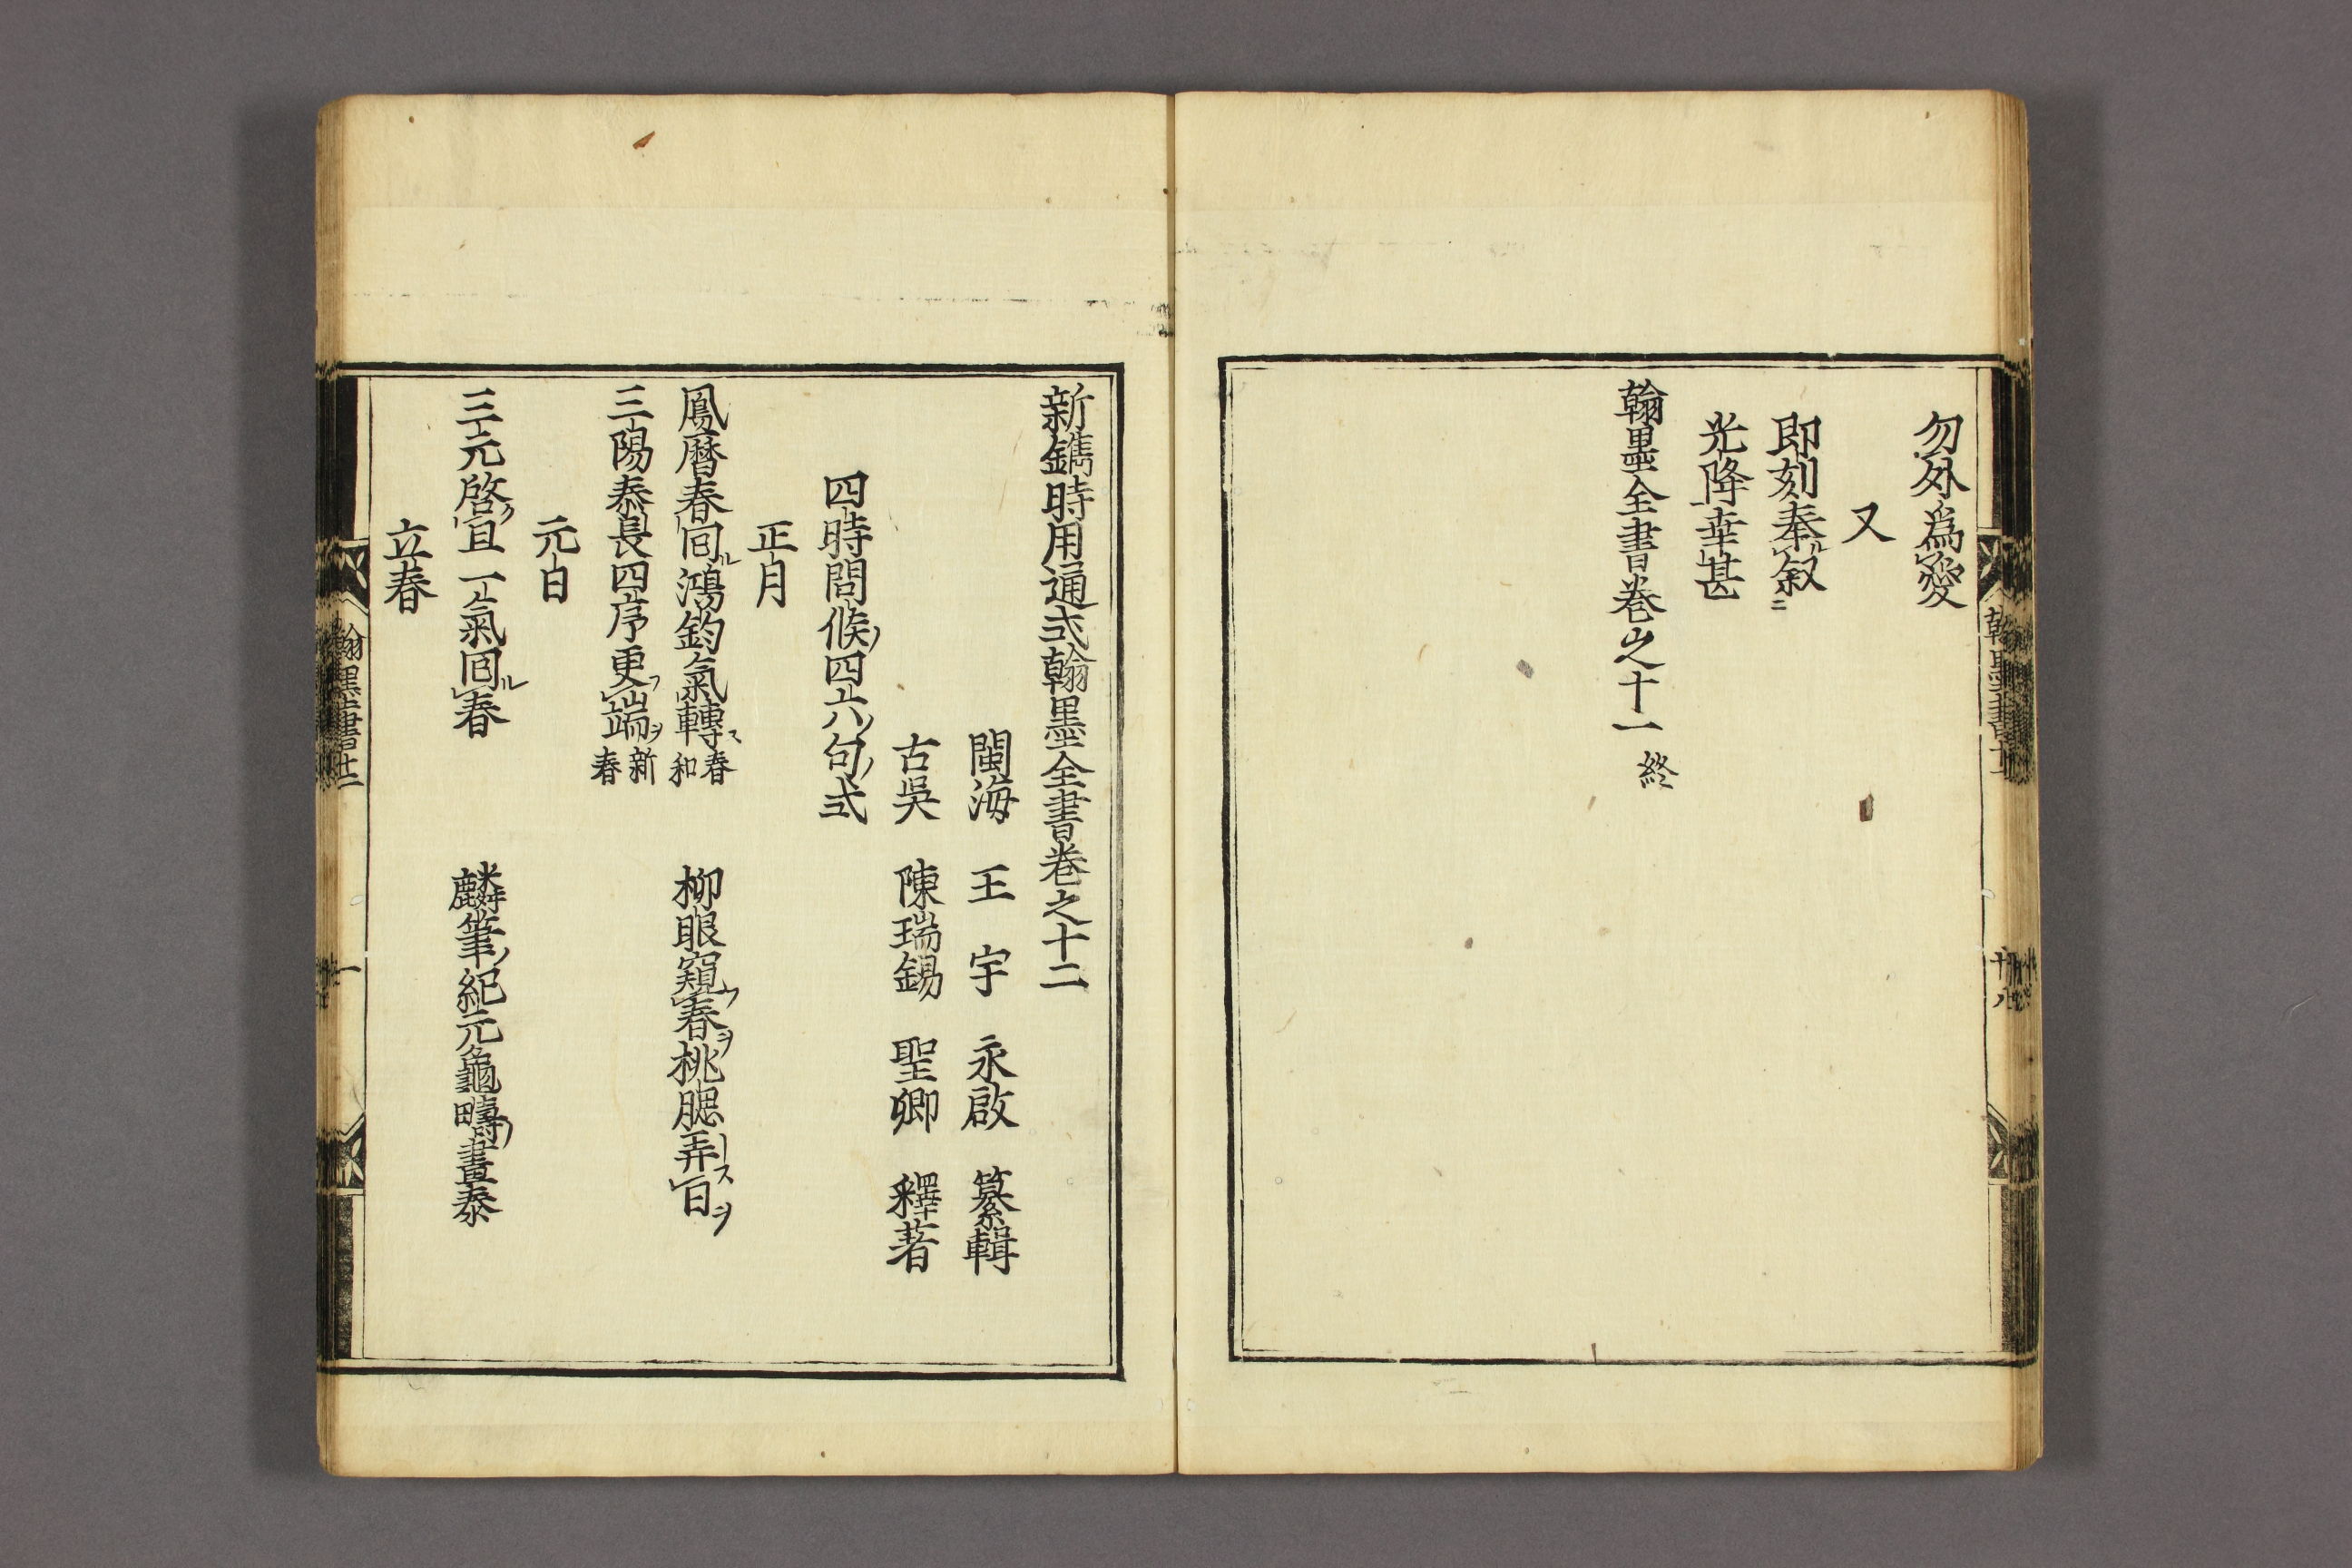 勿外為愛
又
即刻奉叙ニ
光降幸甚
翰墨全書巻之十一 終
新鐫時用通式翰墨全書巻之十二
閩海 王 宇 永啟 纂輯
古吳 陳瑞錫 聖卿 釋著
四時問候ノ四六ノ句ノ式
正月
鳳暦春囘ル鴻鈞氣轉ス春和 柳眼窺フ春ヲ桃腮弄スス日ヲ
三陽泰長四序更フ端ヲ新春
元日
三元啓ク宜一氣囘ル春 麟筆ノ紀元龜疇ノ畫泰
立春
翰墨書十二
一